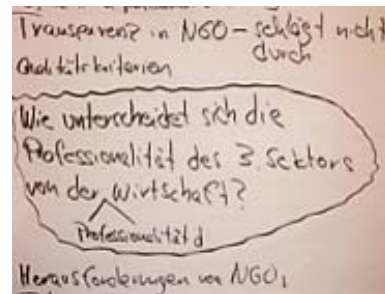 Transparenz in NGO - schlägt nicht
durch
Qualitätskriterien
Wie unterscheidet sich die
Professionalität des 3. Sektors
von der Wirtschaft?
Professionalität d
Herausforderungen von NGO,